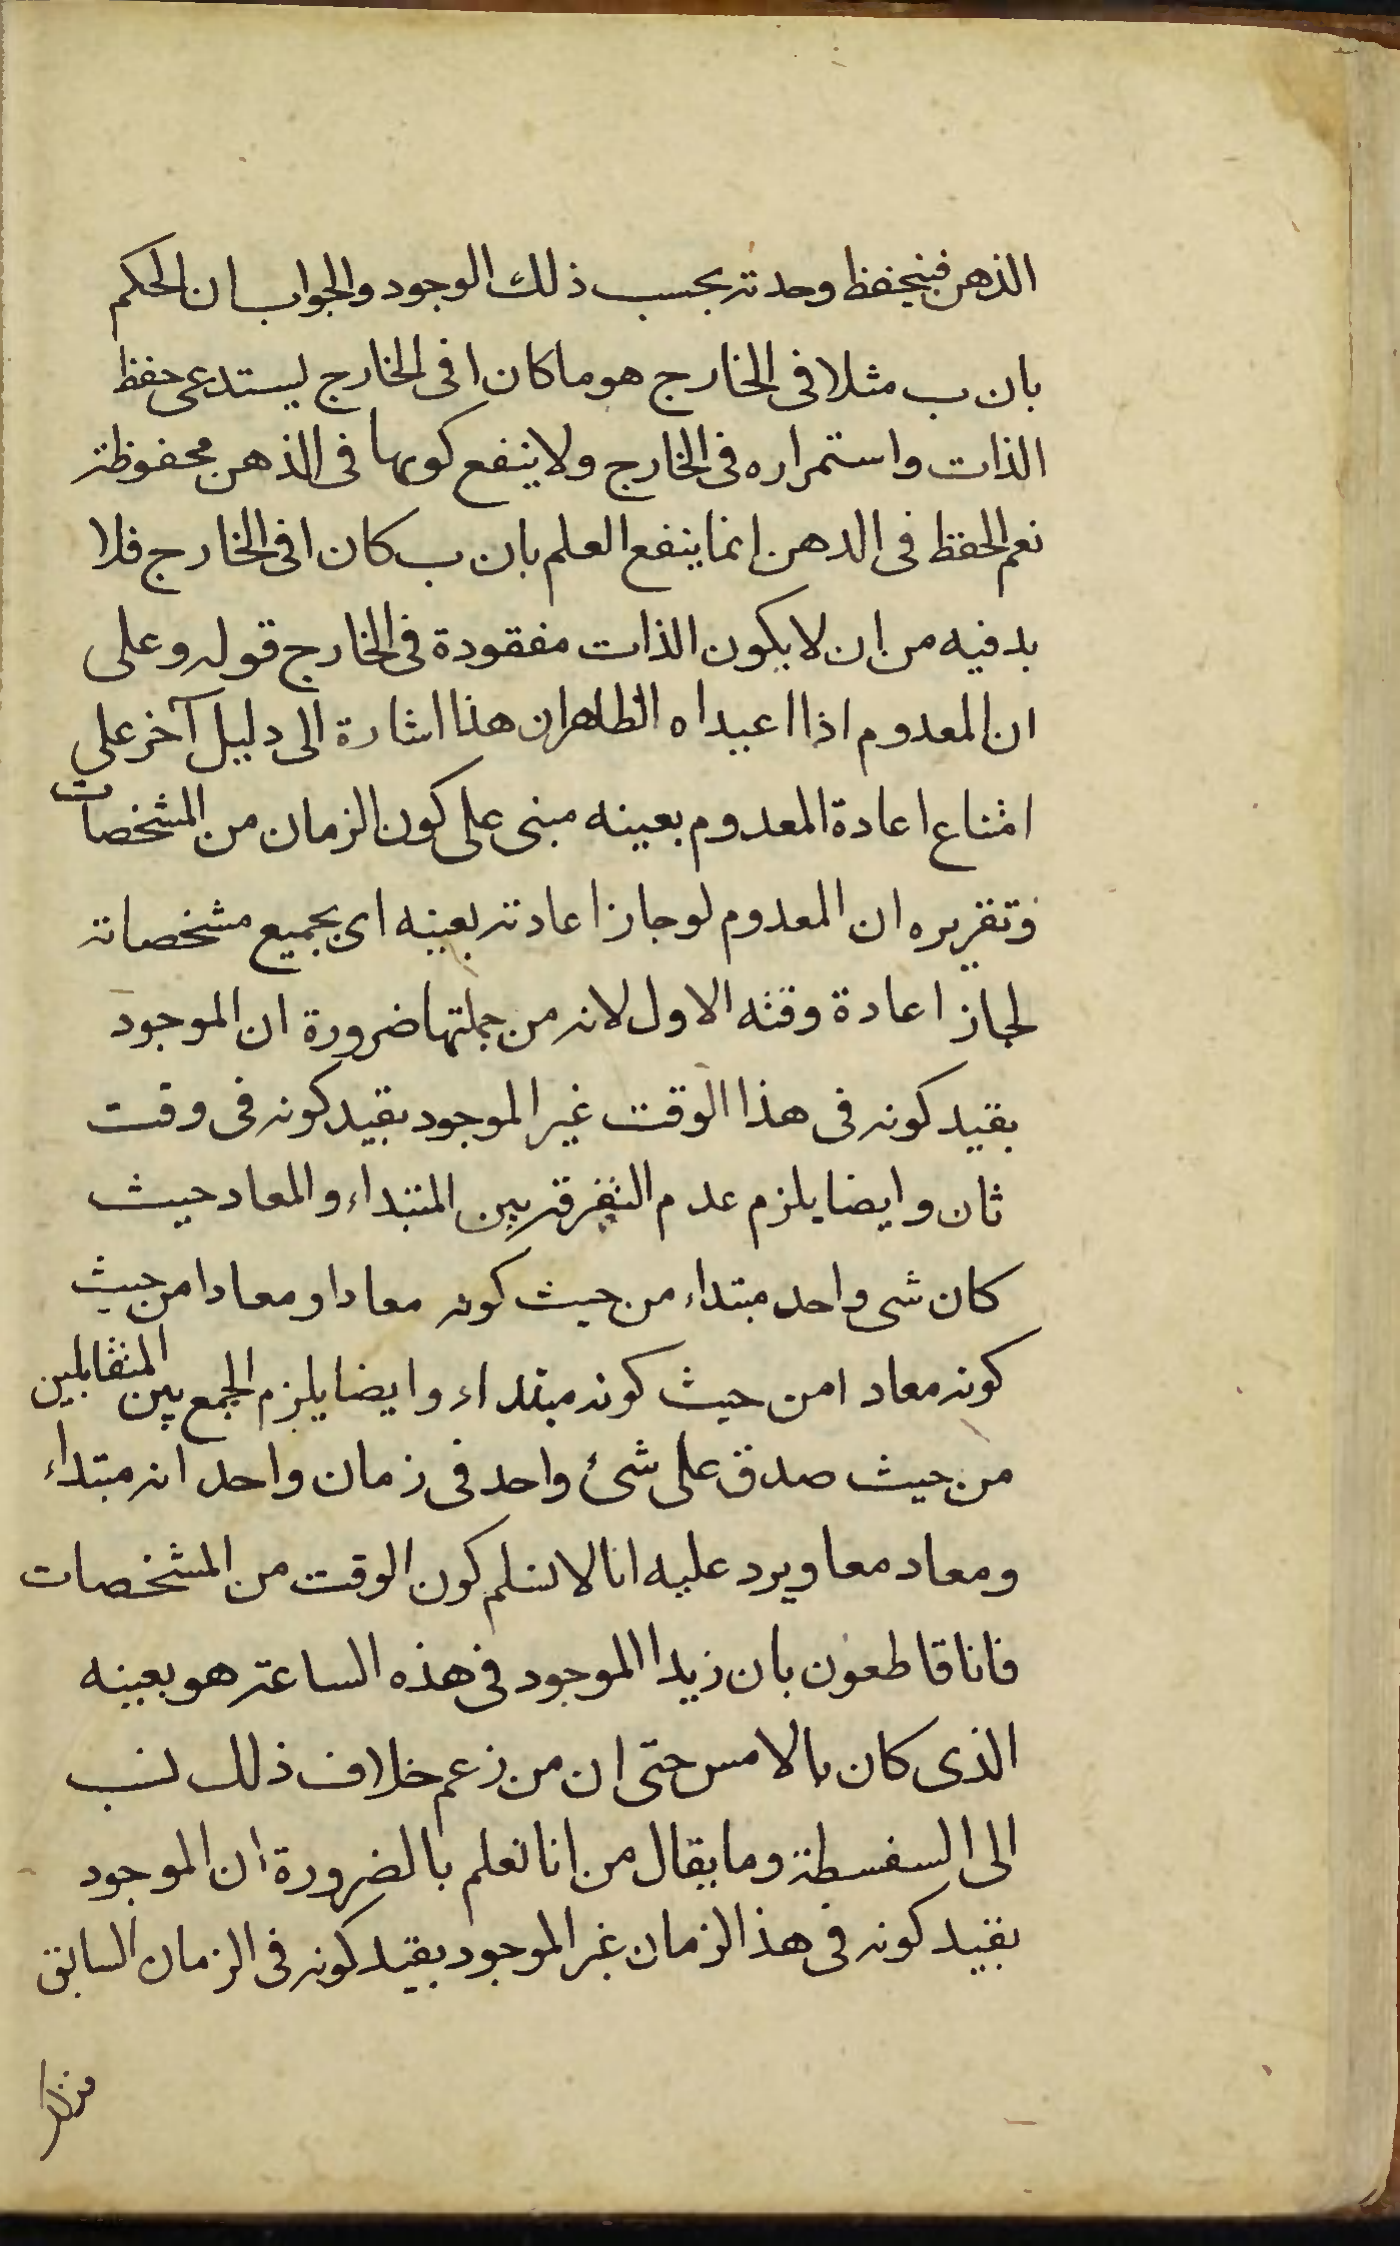 الذهن فينحفظ وحدته بحسب ذلك الوجود والجواب ان الحكم
بان ب مثلا فى الخارج هو ما كان ا فى الخارج يستدعى حفظ
الذات واستمراره فى الخارج ولا ينفع كونها فى الذهن محفوظة
نعم الحفظ فى الدهن انما ينفع العلم بان ب كان ا فى الخارج فلا
بد فيه من ان لا يكون الذات مفقودة فى الخارج قوله وعلى
ان المعدوم اذا اعيد اه الظاهر ان هذا اشارة الى دليل آخر على
امتناع اعادة المعدوم بعينه مبنى على كون الزمان من المشخصات
وتقريره ان المعدوم لو جاز اعادته بعينه اى بجميع مشخصاته
لجاز اعادة وقته الاول لانه من جملتها ضرورة ان الموجود
بقيد كونه فى هذا الوقت غير الموجود بقيد كونه فى وقت
ثان وايضا يلزم عدم التفرقة بين المبتداء والمعاد حيث
كان شى واحد مبتداء من حيث كونه معادا ومعادا من حيث
كونه معادا من حيث كونه مبتداء وايضا يلزم الجمع بين المتقابلين
من حيث صدق على شئ واحد فى زمان واحد انه مبتداء
ومعاد معا ويرد عليه انا لا نسلم كون الوقت من المشخصات
فانا قاطعون بان زيدا الموجود فى هذه الساعة هو بعينه
الذى كان بالامس حتى ان من زعم خلاف ذلك نسب
الى السفسطة وما يقال من انا نعلم بالضرورة ان الموجود
بقيد كونه فى هذ الزمان غير الموجود بقيد كونه فى الزمان السابق